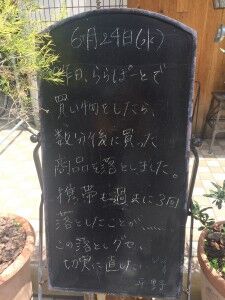 6月24日(水)
昨日、ららぽーとで
買い物をしたら、
数分後に買った
商品を落としました。
携帯も週まに3回
落としたことが、、、、、
この落としグセ、
切実に直したい